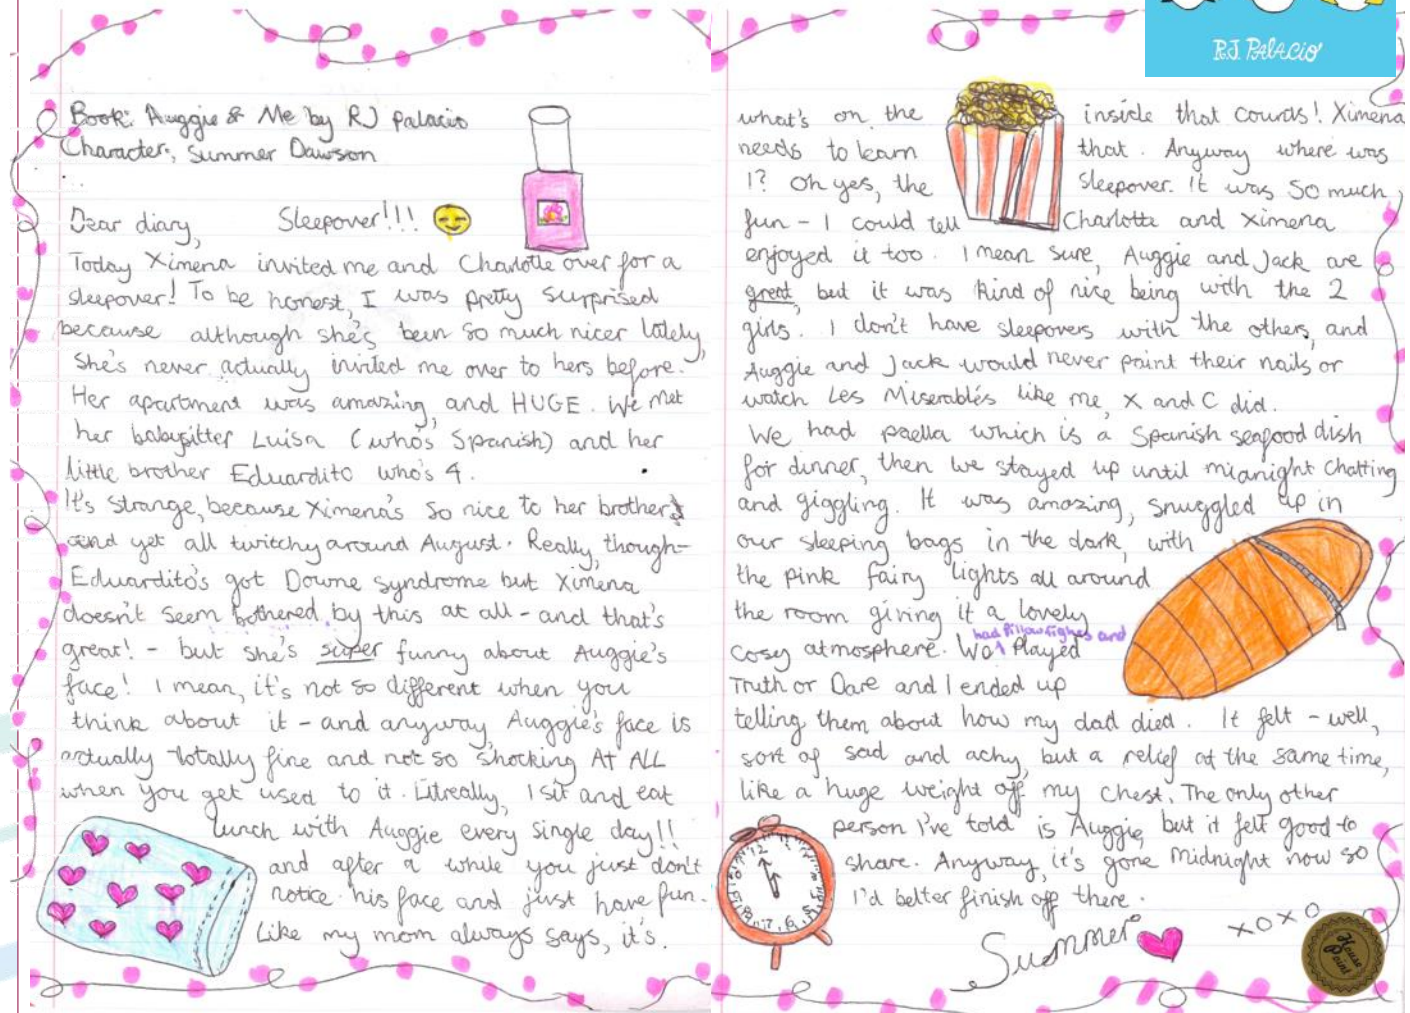 Book: Auggie & Me by RJ Palacio
Character: Summer Dawson
Dear diary, Sleepover!!!
Today Ximena invited me and Charlotte over for a
sleepover! To be honest, I was pretty surprised
because although she's been so much nicer lately,
She's never actually invited me over to hers before.
Her apartment was amazing, and HUGE. We met
her babysitter Luisa (who's Spanish) and her
little brother Eduardito who's 4.
It's strange, because Ximena's so nice to her brother
and yet all twitchy around August. Really, though-
Eduardito's got Downe syndrome but Ximena
doesn't seem bothered by this at all - and that's
great! - but she's super funny about Auggie's
face! I mean, it's not so different when you
think about it - and anyway Auggie's face is
actually totally fine and not so shocking AT ALL
when you get used to it. Litreally, I sit and eat
lunch with Auggie every single day!!
and after a while you just don't
notice his face and just have fun.
Like my mom always says, it's.
R.J. PALACIO
what's on the inside that counts! Ximena
needs to learn that. Anyway where was
I? Oh yes, the sleepover. It was so much
fun - I could tell Charlotte and Ximena
enjoyed it too. I mean sure, Auggie and Jack are
great, but it was kind of nice being with the 2
girls. I don't have sleepovers with the others, and
Auggie and Jack would never paint their nails or
watch Les Miserablés like me, X and C did.
We had paella which is a Spanish seafood dish
for dinner, then we stayed up until midnight chatting
and giggling. It was amazing, snuggled up in
our sleeping bags in the dark, with
the pink fairy lights all around
the room giving it a lovely
had pillowfights and
cosy atmosphere. We played
Truth or Dare and I ended up
telling them about how my dad died. It felt - well,
sort of sad and achy, but a relief at the same time,
like a huge weight off my chest. The only other
person I've told is Auggie, but it felt good to
share. Anyway, it's gone midnight now so
I'd better finish off there.
Summer xoxo
House
Point